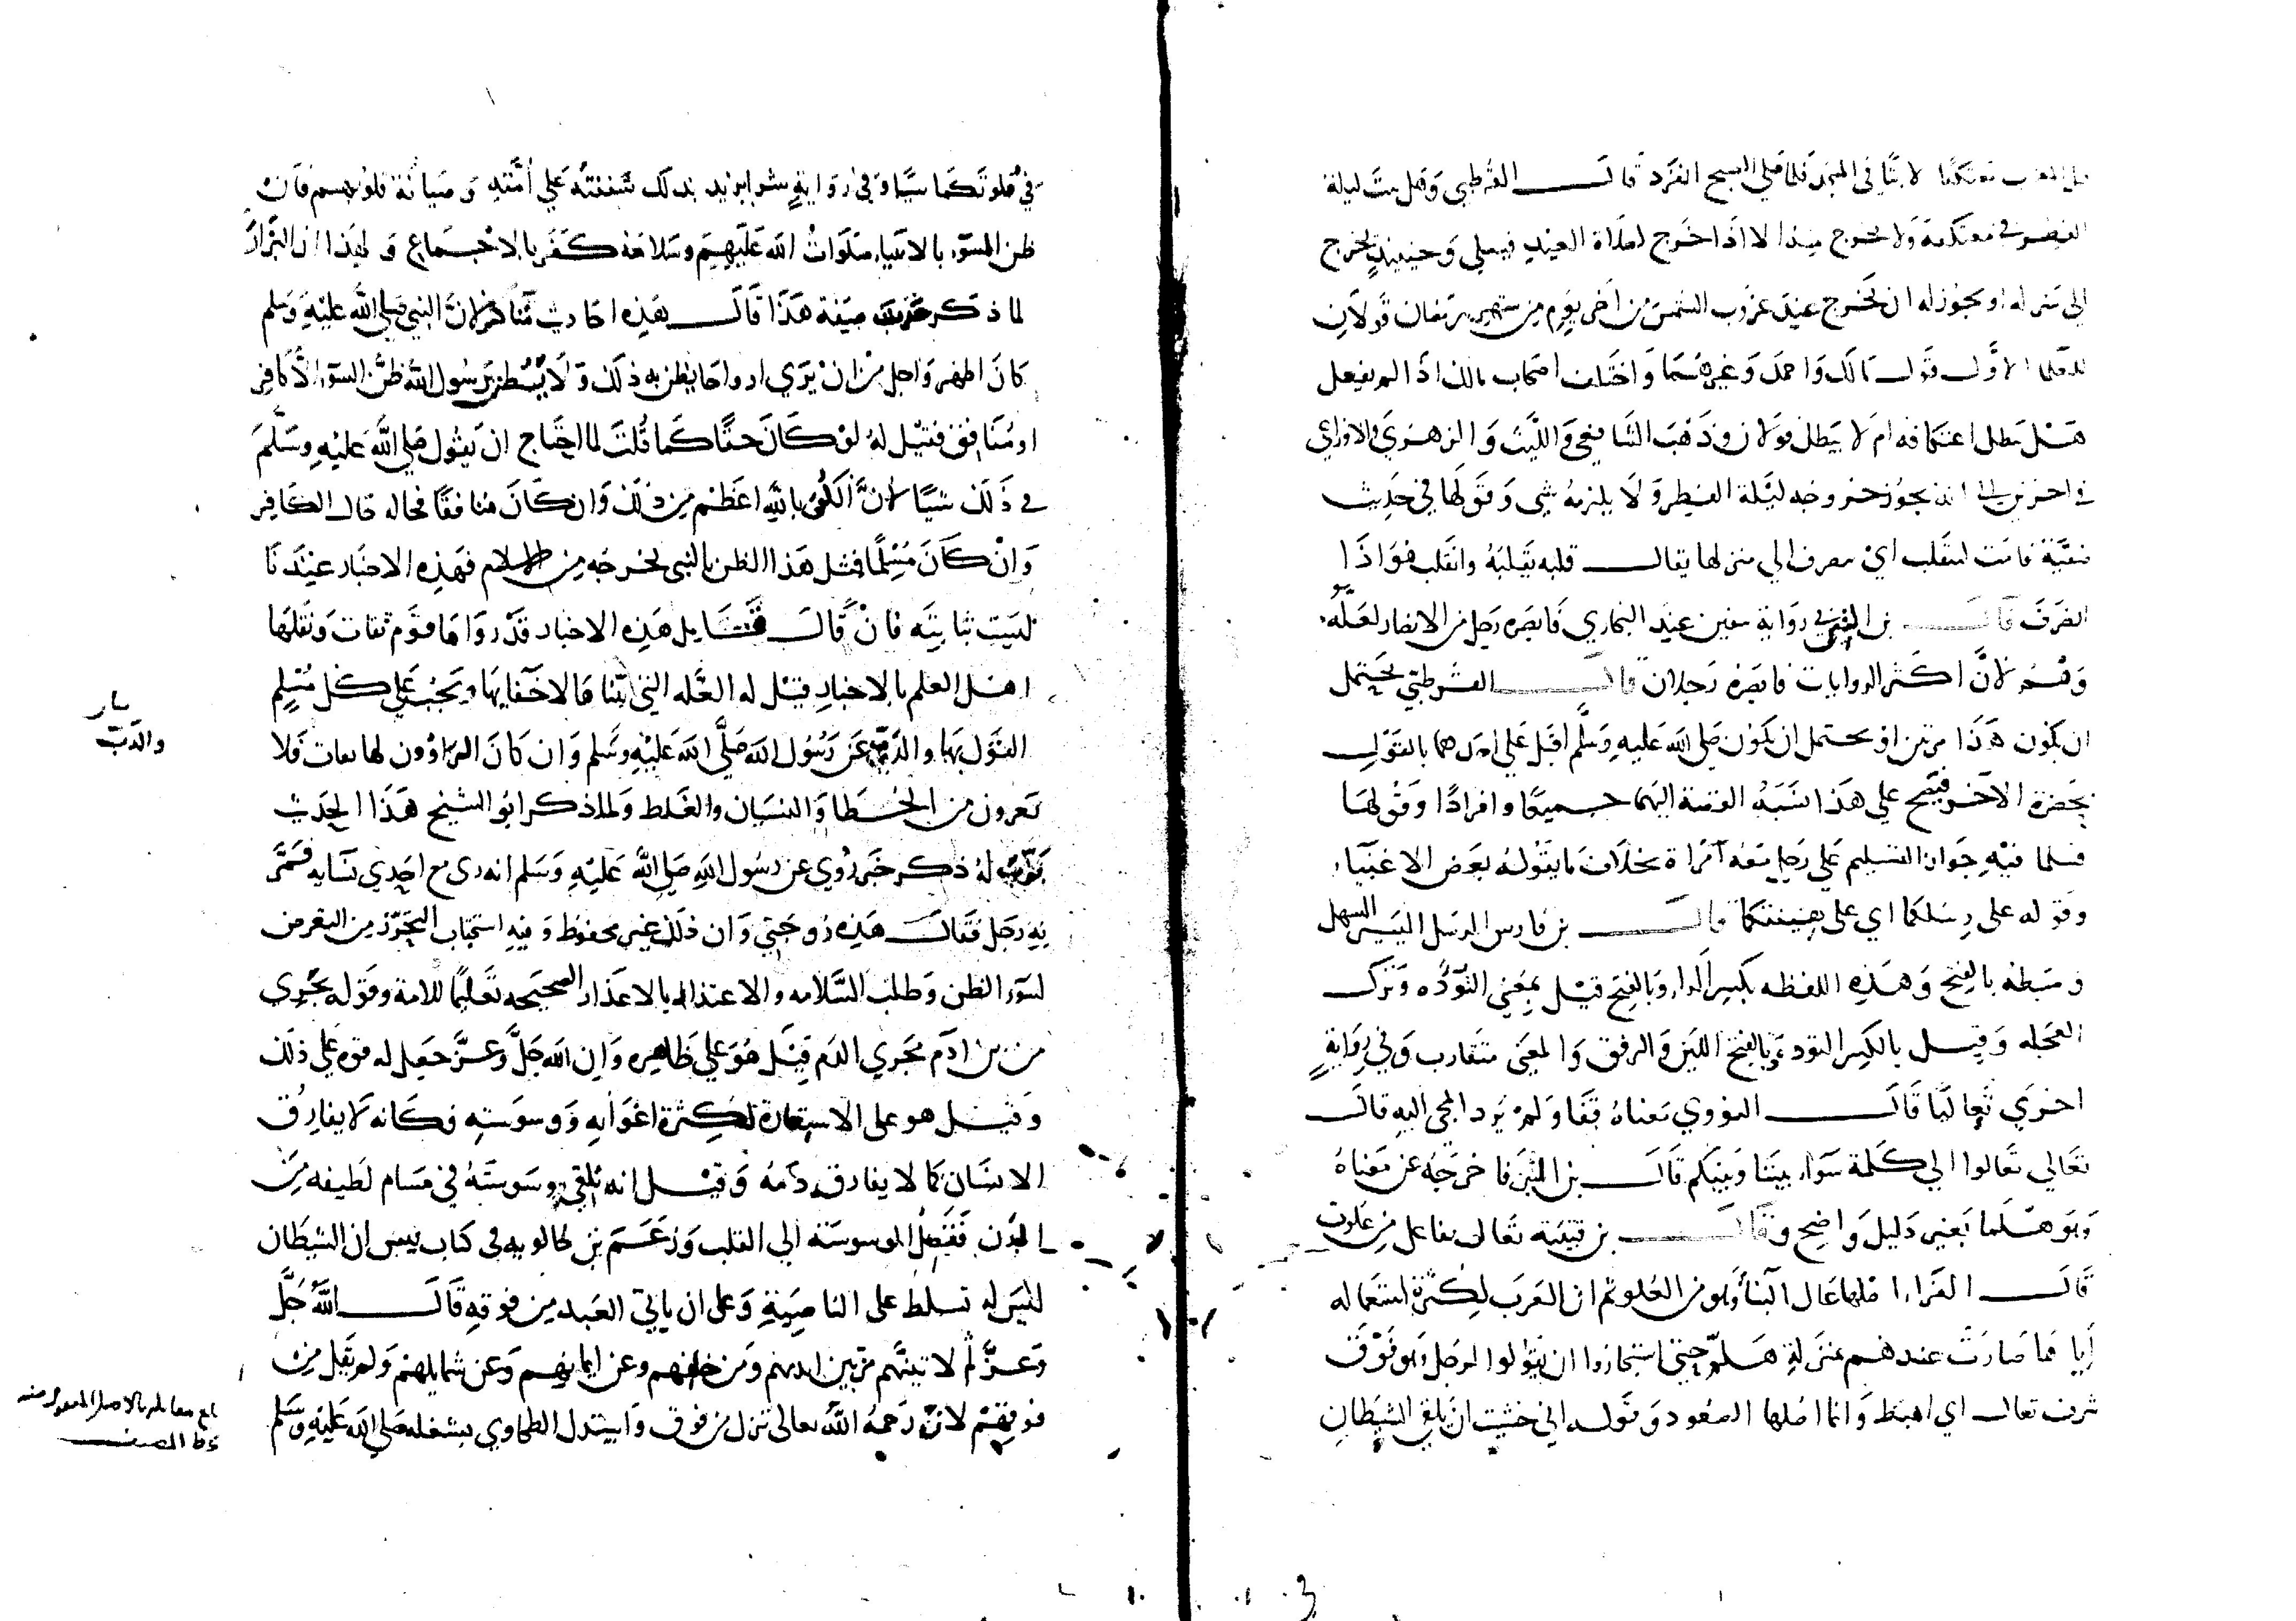 لابثا في المسجد فلما صلى الصبح انفرد قال القرطبي وقيل يبيت ليلة
الفطر في معتكفه ولا يخرج منه الا اذا خرج لصلاة العيد فيصلي وحينئذ يخرج
الى منزله او يجوز له ان يخرج عند غروب الشمس من اخر يوم من شهر رمضان قولان
للعلماء الاول قول مالك واحمد وغيرهما واختلف اصحاب مالك اذا لم يفعل
هل يبطل اعتكافه ام لا يبطل قولان وذهب الشافعي والليث والزهري والاوزاعي
في اخرين الى انه يجوز خروجه ليلة الفطر ولا يلزمه شي وقولها في حديث
صفية قامت لتنقلب اي تنصرف الى منزلها يقال قلبه يقلبه وانقلب هو اذا
انصرف قال بن التين في رواية سفين عند البخاري فابصره رجل من الانصار لعله
وهم لان اكثر الروايات فابصره رجلان قال القرطبي يحتمل
ان يكون هذا مرتين او يحتمل ان يكون صلى الله عليه وسلم اقبل على احدهما بالقول
بحضرة الاخر فيصح على هذا نسبة القصة اليهما جميعا وافرادا وقولها
فسلما فيه جواز التسليم على رجل معه امراة بخلاف ما يقوله بعض الاغبياء
وقوله على رسلكما اي على هينتكما قال بن فارس الرسل اليسير السهل
وضبطه بالفتح وهذه اللفظه بكسر الراء وبالفتح قيل بمعنى التؤده وترك
العجله وقيل بالكسر التودة وبالفتح اللين والرفق والمعنى متقارب وفي رواية
اخرى تعاليا قال النووي معناه قفا ولم يرد المجي اليه قال
تعالى تعالوا الى كلمة سواء بيننا وبينكم قال بن التين فاخرجه عن معناه
وهو هلما بغير دليل واضح وقال بن قتيبة تعال تفاعل من علوت
قال الفراء اصلها عال الينا وهو من العلو ثم ان العرب لكثرة استعماله
اياها صارت عندهم بمنزلة هلم حتى استجازوا ان يقولوا لرجل وهو فوق
شرف تعال اي اهبط وانما اصلها الصعود وقوله اني خشيت ان يلقي الشيطان
في قلوبكما شيا وفي رواية شرا يريد بذلك شفقته على امته وصيانة قلوبهم فان
ظن السوء بالانبياء صلوات الله عليهم وسلامه كفر بالاجماع ولهذا ان البزار
لما ذكر حديث صفية هذا قال هذه احاديث مناكير لان النبي صلى الله عليه وسلم
كان اطهر واجل من ان يرى ان احدا يظن به ذلك ولا يظن برسول الله ظن السوء الا كافر
او منافق فقيل له لو كان حقا كما قلت لما احتاج ان يقول صلى الله عليه وسلم
في ذلك شيا لان الكفر بالله اعظم من ذلك وان كان منافقا فحاله حال الكافر
وان كان مسلما فمثل هذا الظن بالنبي يخرجه من الاسلام فهذه الاخبار عندنا
ليست ثابته فان قال قايل هذه الاخبار قد رواها قوم ثقات ونقلها
اهل العلم بالاخبار قيل له العله التي بينا فالاخفا بها ويجب على كل مسلم
القول بها والذب عن رسول الله صلى الله عليه وسلم وان كان الراوون لها ثقات فلا
يعرون من الخطا والنسيان والغلط ولما ذكر ابو الشيخ هذا الحديث
بوب له ذكر خبر روي عن رسول الله صلى الله عليه وسلم انه ري مع احدى نسايه فمر
به رجل فقال هذه زوجتي وان ذلك غير محفوظ وفيه استحباب التحرز من التعرض
لسوء الظن وطلب السلامه والاعتذار بالاعذار الصحيحه تعليما للامة وقوله يجري
من بن ادم مجرى الدم قيل هو على ظاهره وان الله جل وعز جعل له قوه على ذلك
وقيل هو على الاستعارة لكثرة اغوايه ووسوسته فكانه لا يفارق
الانسان كما لا يفارق دمه وقيل انه يلقي وسوسته في مسام لطيفه من
البدن فتصل الوسوسة الى القلب وزعم بن خالويه في كتاب ليس ان الشيطان
ليس له تسلط على الناصية وعلى ان ياتي العبد من فوقه قال الله جل
وعز ثم لاتينهم من بين ايديهم ومن خلفهم وعن ايمانهم وعن شمايلهم ولم يقل من
فوقهم لان رحمة الله تعالى تنزل من فوق واستدل الطحاوي بشغله صلى الله عليه وسلم
والذب
بلغ مقابله بالاصل المنقول منه
بخط المصنف